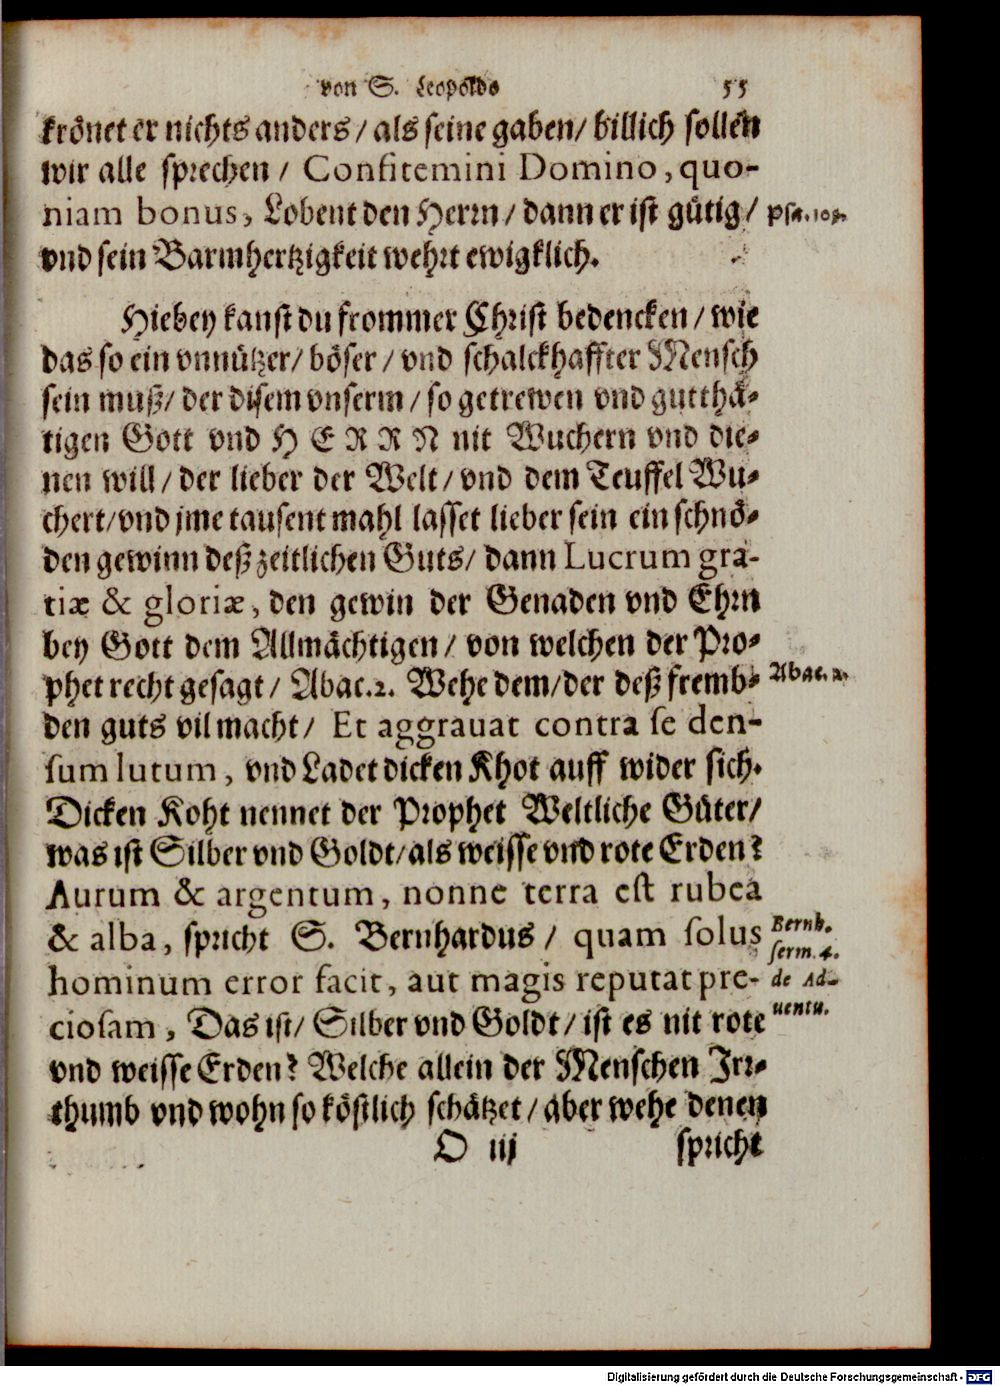 von S. Leopoldo 55
krönet er nichts anders / als seine gaben / billich sollen
wir alle sprechen / Confitemini Domino, quo-
niam bonus, Lobent den Herrn / dann er ist gütig /
vnd sein Barmhertzigkeit wehrt ewigklich.
Hiebey kanst du frommer Christ bedencken / wie
das so ein vnnützer / böser / vnd schalckhaffter Mensch
sein muß / der disem vnserm / so getrewen vnd gutthä-
tigen Gott vnd HERRN nit Wuchern vnd die-
nen will / der lieber der Welt / vnd dem Teuffel Wu-
chert / vnd jme tausent mahl lasset lieber sein ein schnö-
den gewinn deß zeitlichen Guts / dann Lucrum gra-
tiæ & gloriæ, den gewin der Genaden vnd Ehrn
bey Gott dem Allmächtigen / von welchen der Pro-
phet recht gesagt / Abac. 2. Wehe dem / der deß fremb-
den guts vil macht / Et aggrauat contra se den-
sum lutum, vnd Ladet dicken Khot auff wider sich.
Dicken Koht nennet der Prophet Weltliche Güter /
was ist Silber vnd Goldt / als weisse vnd rote Erden?
Aurum & argentum, nonne terra est rubea
& alba, spricht S. Bernhardus / quam solus
hominum error facit, aut magis reputat pre-
ciosam, Das ist / Silber vnd Goldt / ist es nit rote
vnd weisse Erden? Welche allein der Menschen Irr-
thumb vnd wohn so köstlich schätzet / aber wehe denen
O iij spricht
Abac. 2.
Bernh.
serm. 4.
de Ad-
uentu.
Digitalisierung gefördert durch die Deutsche Forschungsgemeinschaft - DFG